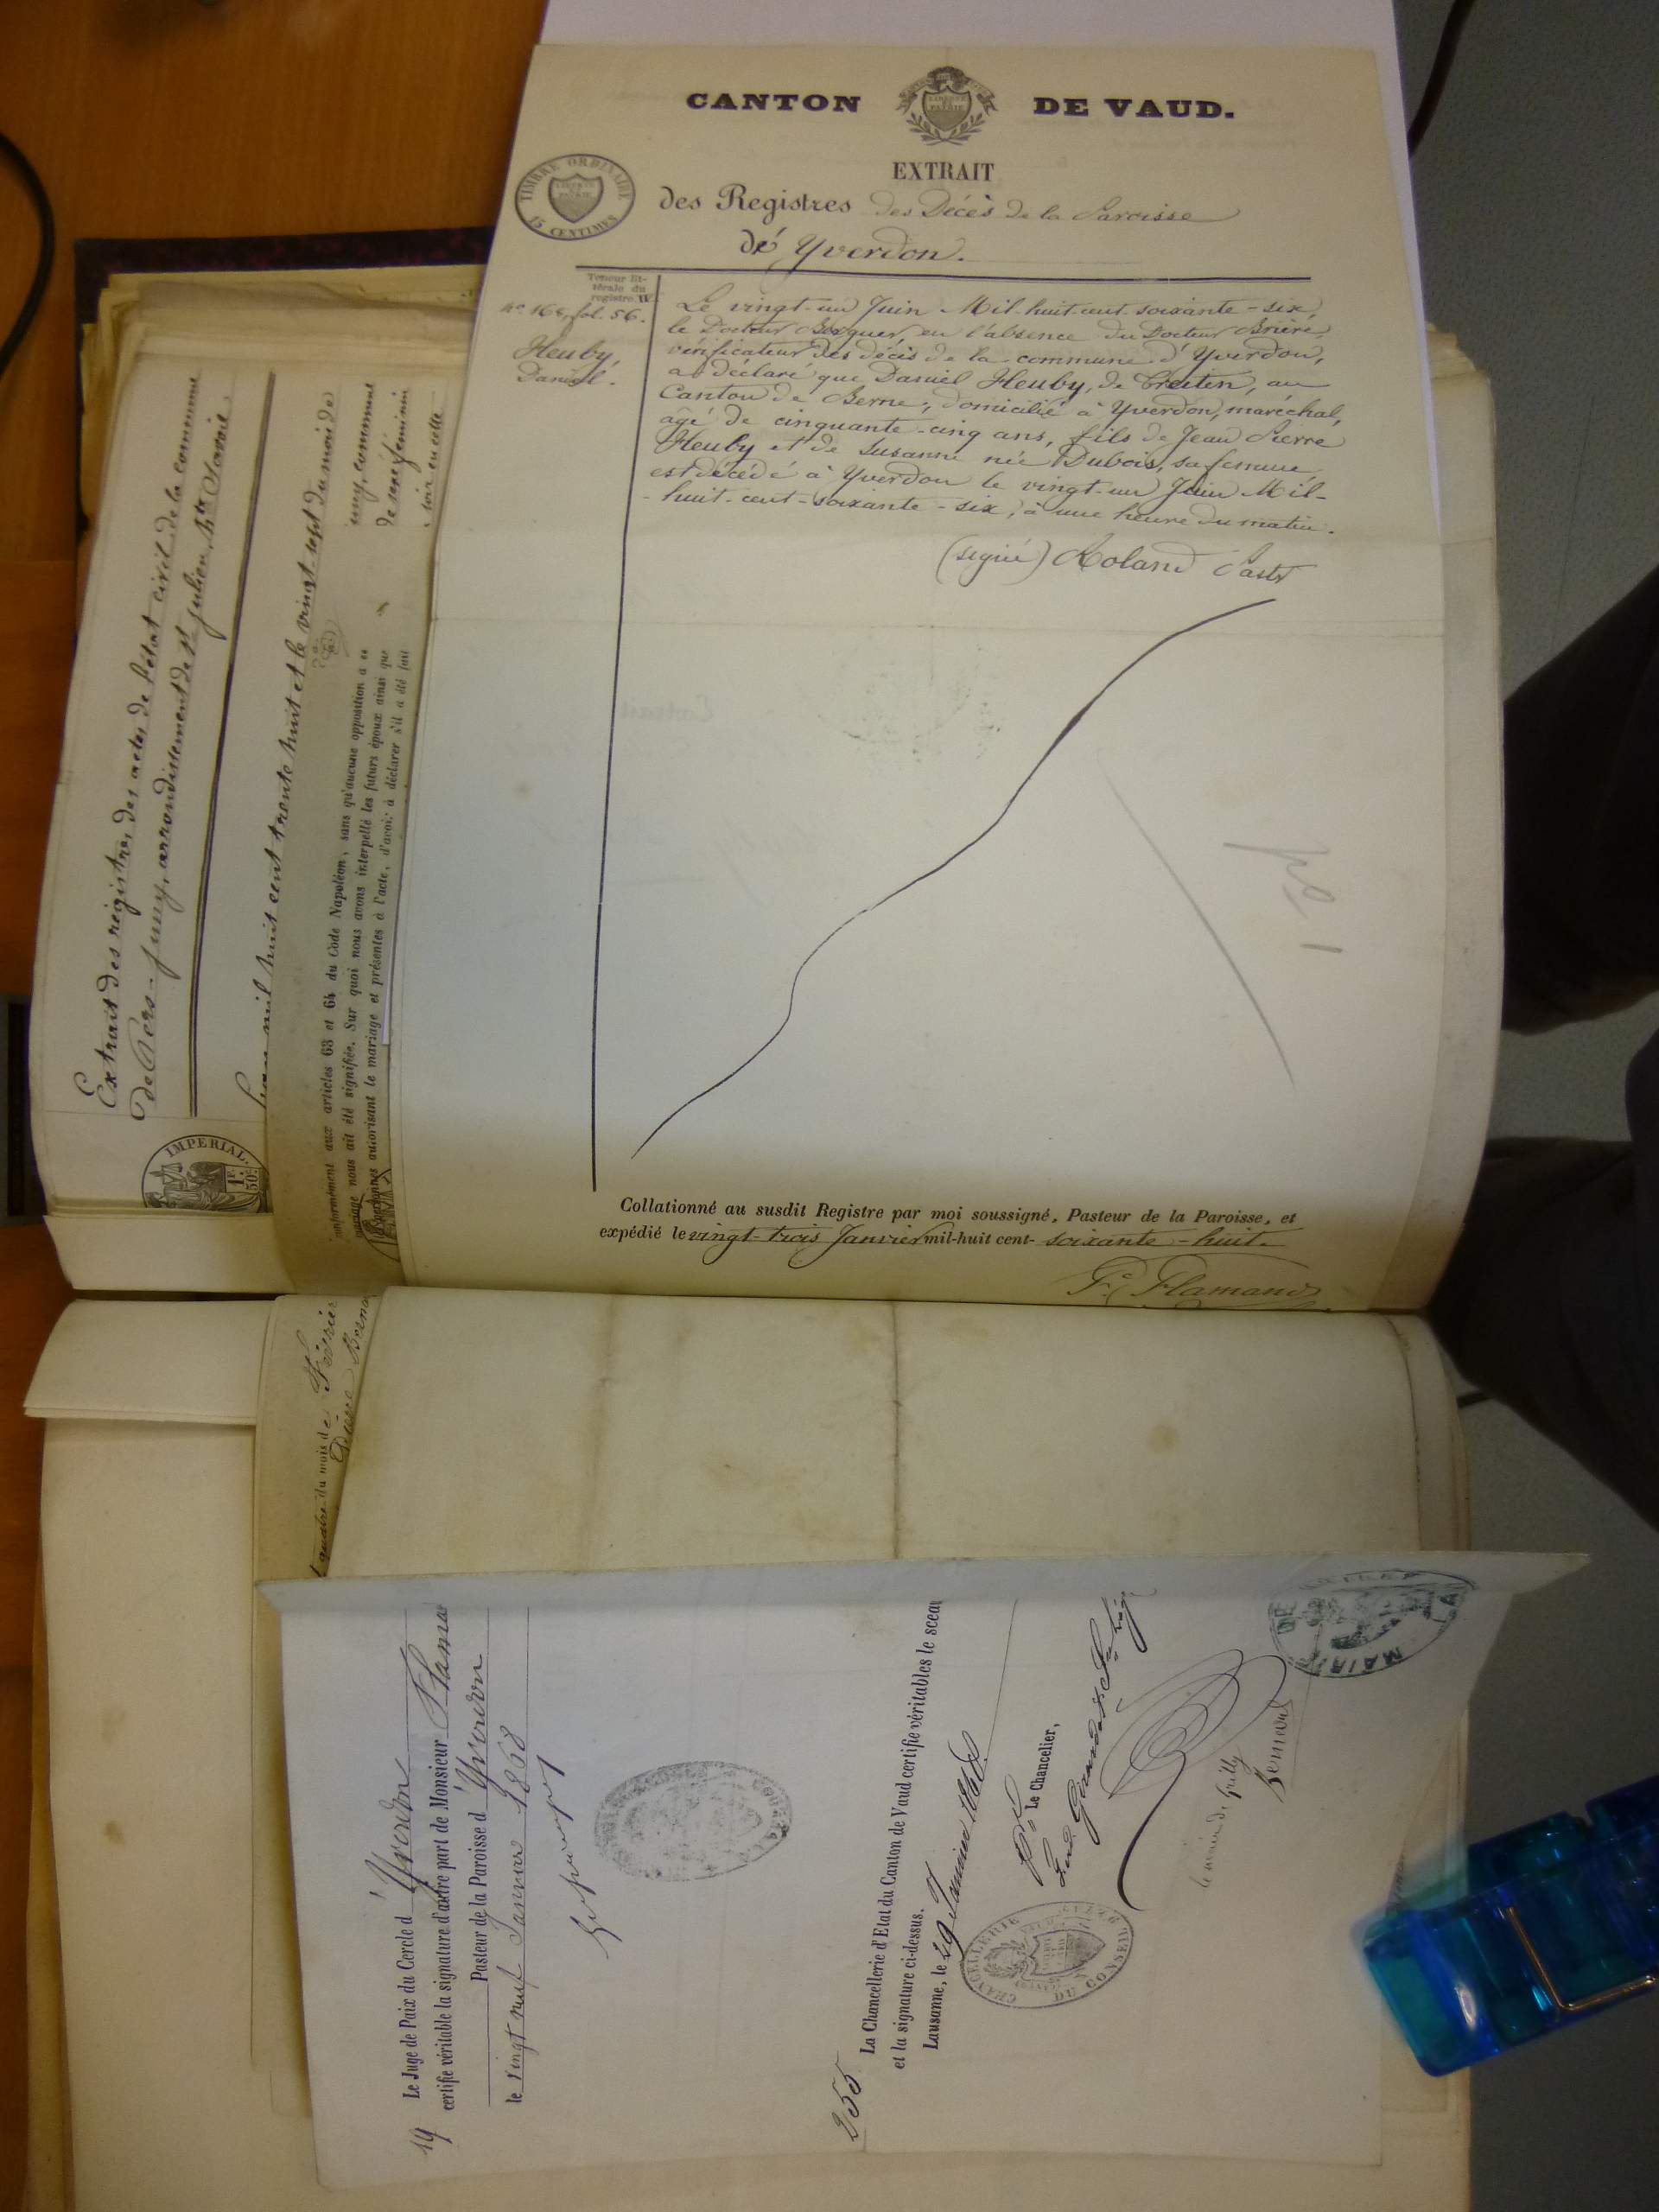 CANTON DE VAUD.
LIBERTÉ ET PATRIE
TIMBRE ORDINAIRE
15 CENTIMES
EXTRAIT
des Registres des Décès de la Paroisse
de Yverdon.
Teneur lit-
térale du
registre
No. 168, fol. 56.
Heuby,
Daniel.
Le vingt-un Juin Mil-huit-cent-soixante-six,
le Docteur en l'absence du Docteur Brière,
vérificateur des décès de la commune d'Yverdon,
a déclaré que Daniel Heuby, de Treiten, au
Canton de Berne, domicilié à Yverdon, maréchal,
âgé de cinquante-cinq ans, fils de Jean Pierre
Heuby et de Susanne née Dubois, sa femme
est décédé à Yverdon le vingt-un Juin Mil-
-huit-cent-soixante-six, à une heure du matin.
(signé) Roland Pastr
Collationné au susdit Registre par moi soussigné, Pasteur de la Paroisse, et
expédié le vingt-trois Janvier mil-huit cent- soixante-huit.
F. Flamand
Extrait des registres des actes de l'état civil de la commune
de Vers, arrondissement de St Julien, Hte Savoie.
mil huit cent trente huit et le vingt sept du mois de
commune
de sexe féminin
IMPERIAL.
1F.
50c.
conformément aux articles 63 et 64 du Code Napoléon, sans qu'aucune opposition a ce
mariage nous ait été signifiée. Sur quoi nous avons interpellé les futurs époux ainsi que
personnes autorisant le mariage et présentes à l'acte, d'avoir à déclarer s'il a été fait
quatre du mois de Février
19
Le Juge de Paix du Cercle d'Yverdon
certifie véritable la signature d'autre part de Monsieur Flama
Pasteur de la Paroisse d'Yverdon
le vingt neuf Janvier 1868
255
La Chancellerie d'Etat du Canton de Vaud certifie véritables le sceau
et la signature ci-dessus.
Lausanne, le 29 Janvier 1868.
Le Chancelier,
CHANCELLERIE
DU CONSEIL
le maire de Grilly
MAIRIE